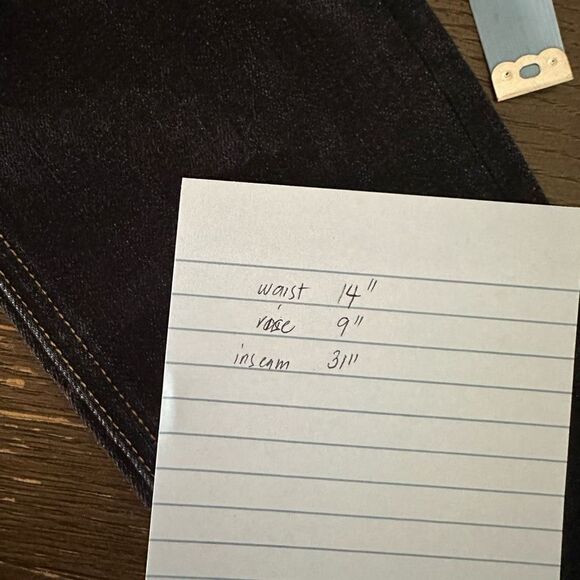 waist 14"
rise 9"
inseam 31"